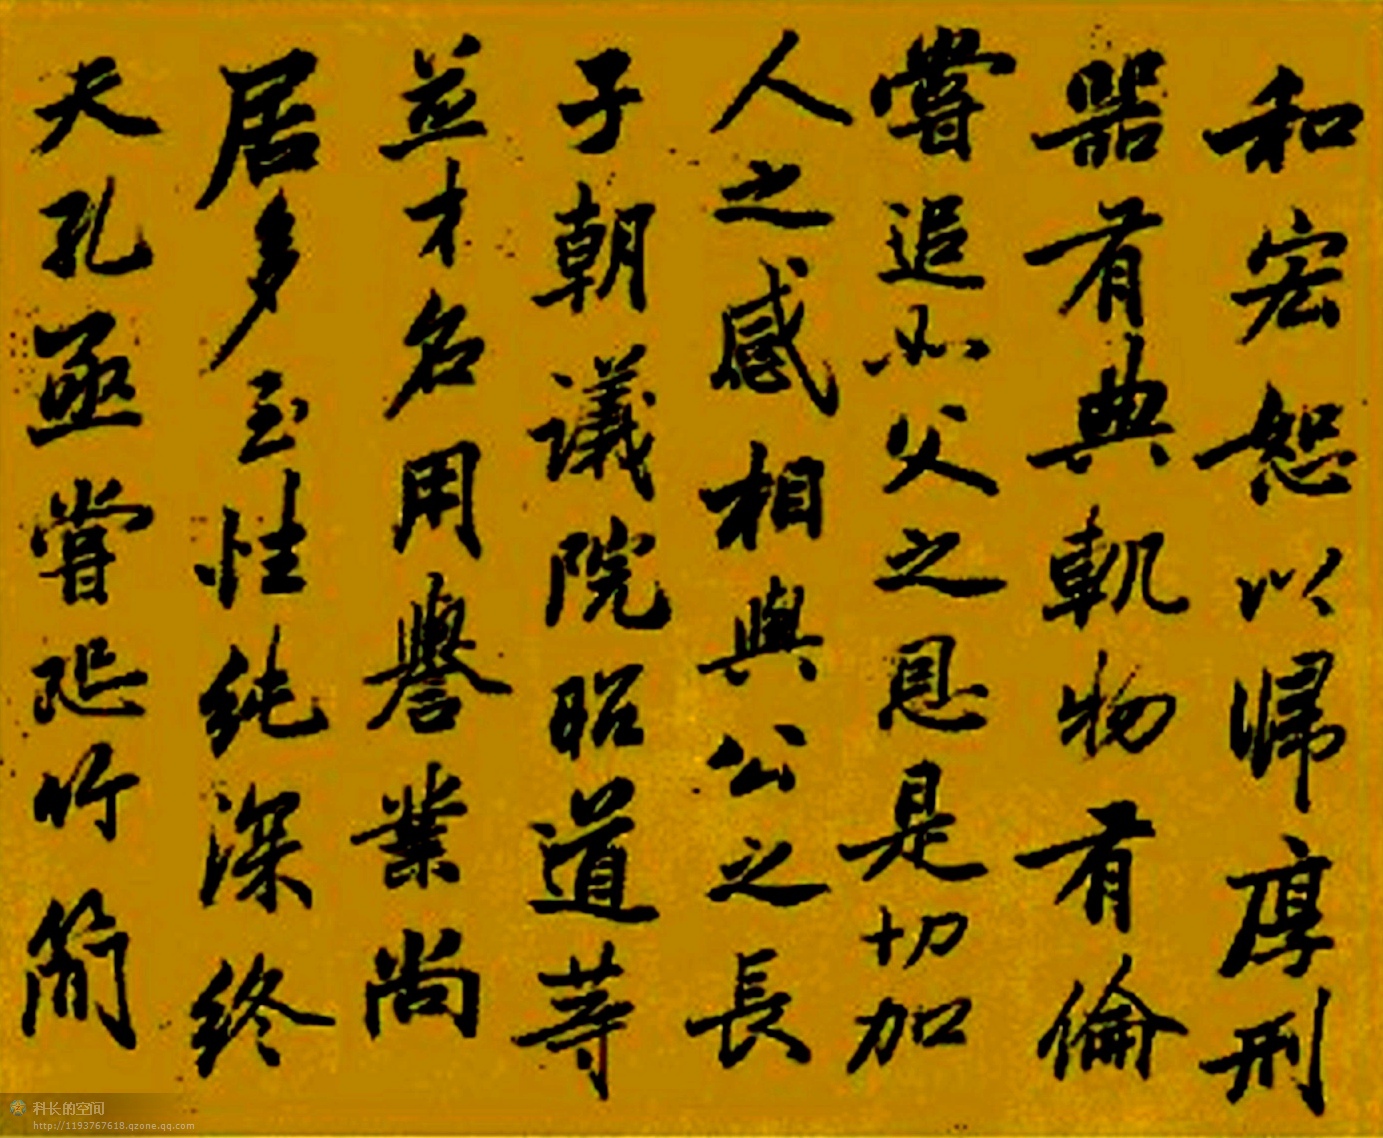 和宏恕以归厚刑
器有典軌物有倫
嘗追如父之恩是切加
人之感相與公之長
子朝議院昭道等
並才名用譽業尚
居多至性純深終
天孔亟嘗延竹簡
科长的空间
http://1193767618.qzone.qq.com